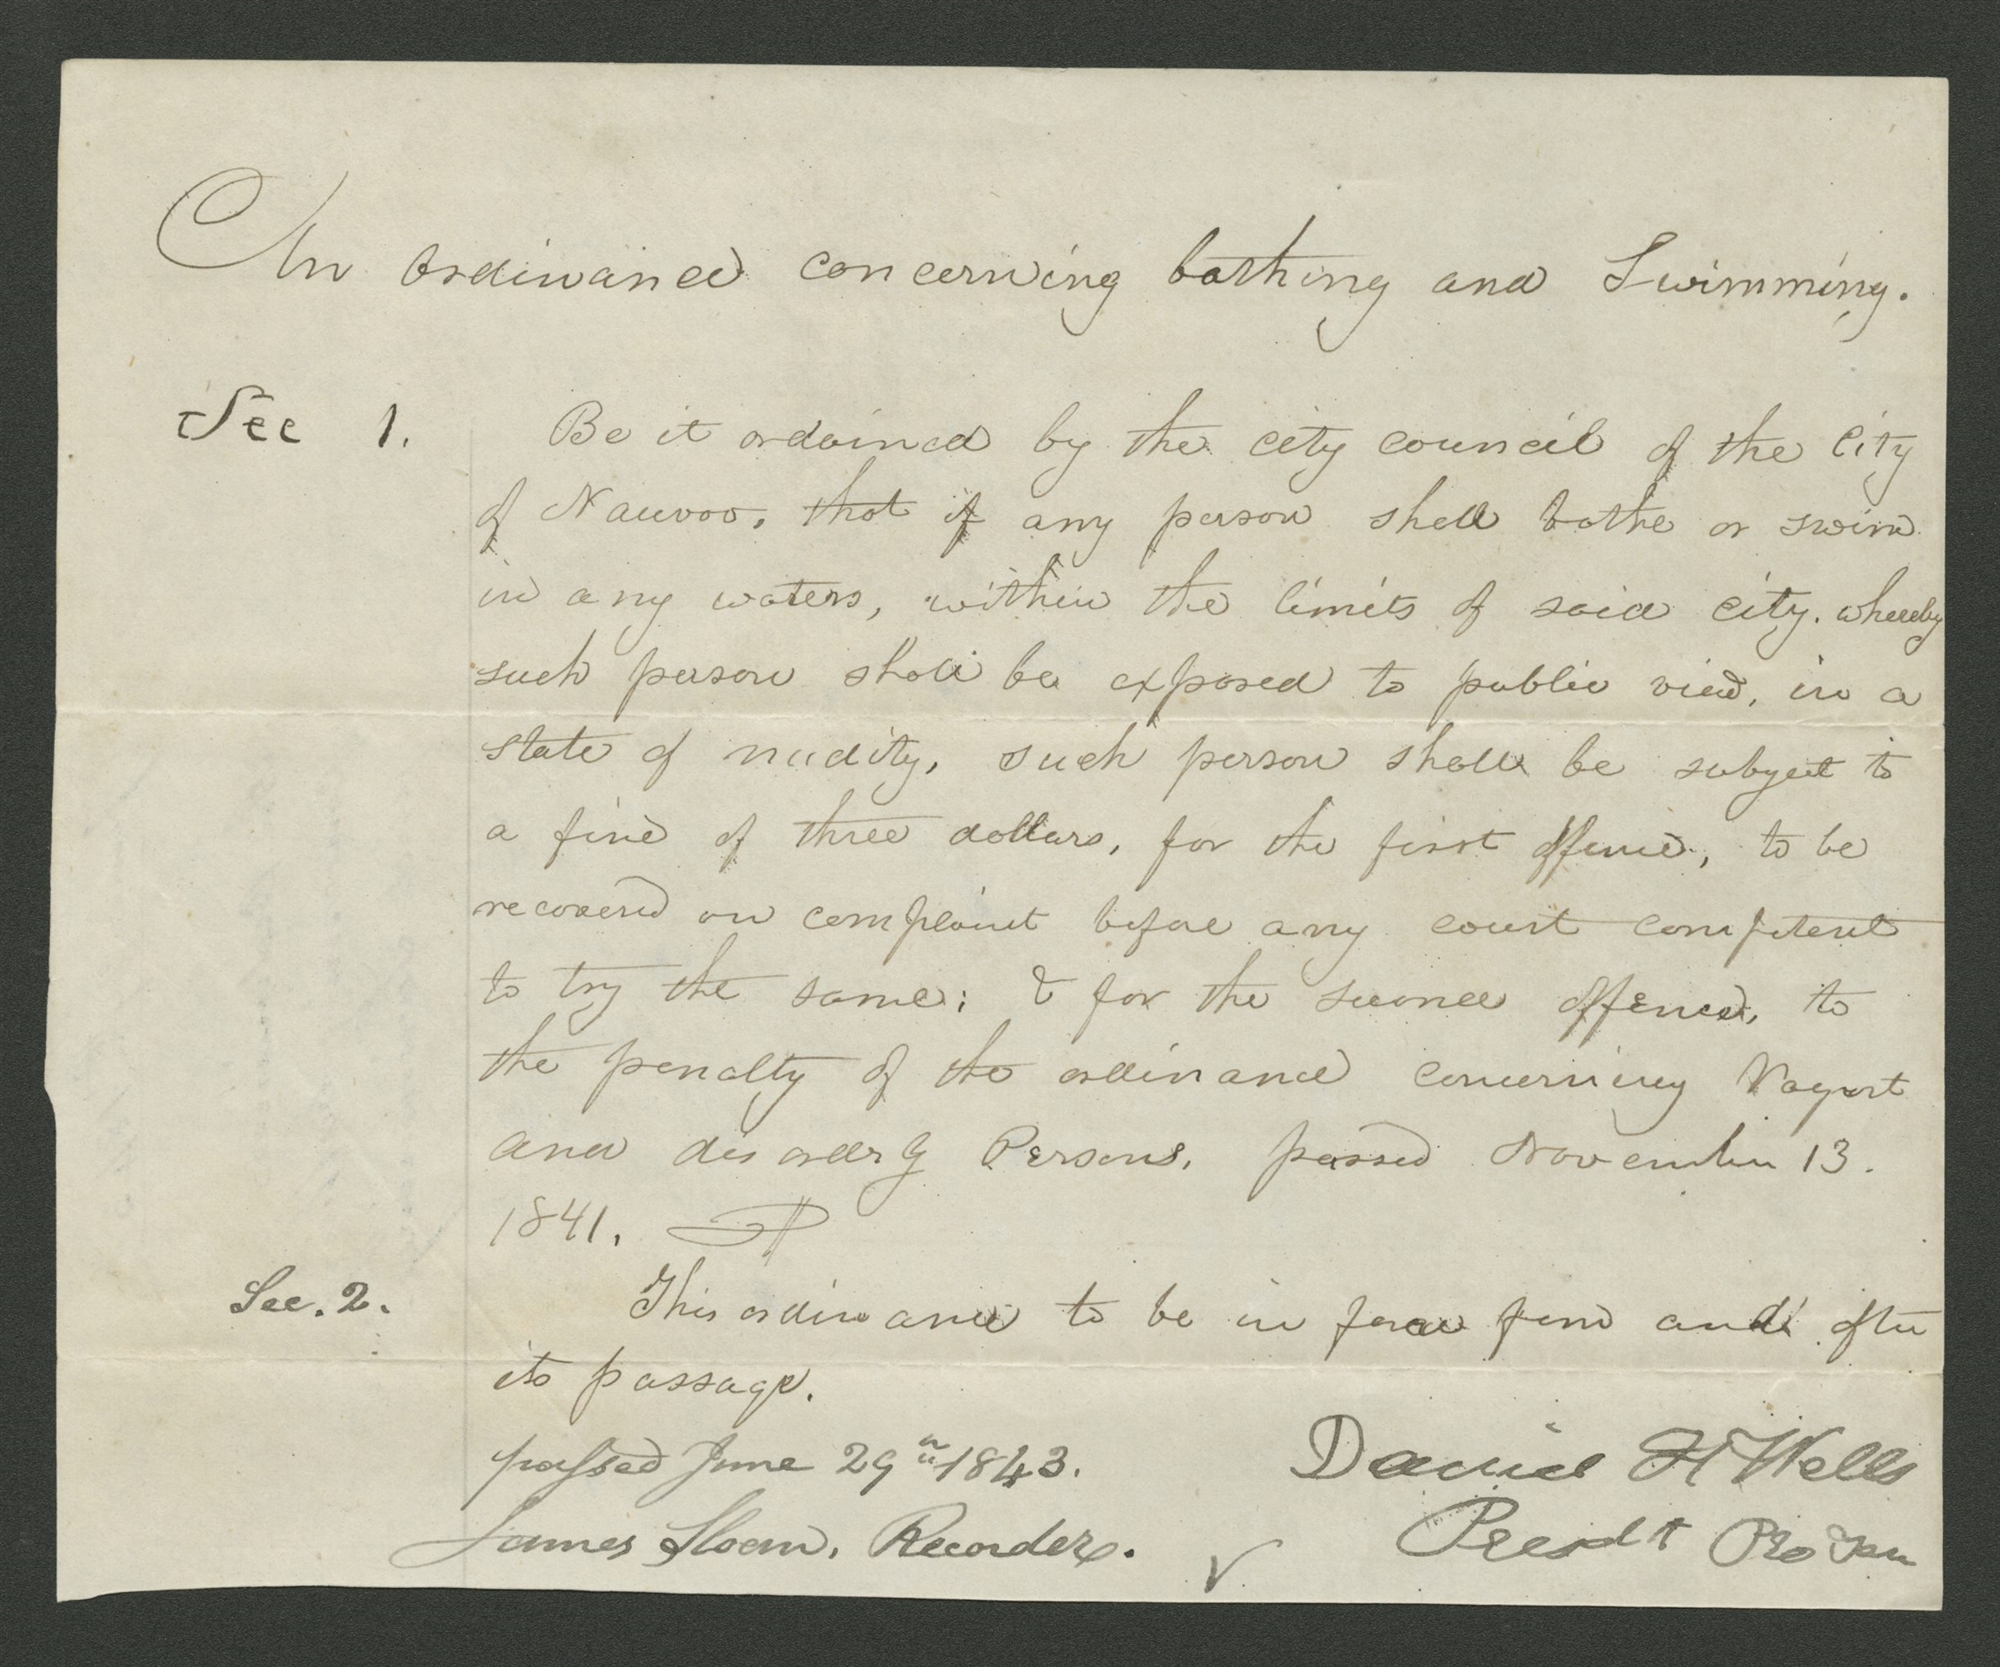 An ordinance concerning bathing and Swimming.
Sec 1. Be it ordained by the city council of the City
of Nauvoo, that if any person shall bathe or swim
in any waters, within the limits of said city. whereby
such person shall be exposed to public view, in a
state of nudity, such person shall be subject to
a fine of three dollars, for the first offence, to be
recovered on complaint before any court competent
to try the same; & for the second offence, to
the penalty of the ordinance concerning Vagrant
and disorderly Persons, passed November 13.
1841.
Sec. 2. This ordinance to be in force from and after
its passage.
passed June 29th 1843.
Daniel H Wells
James Sloan, Recorder.
Presdt Pro Tem